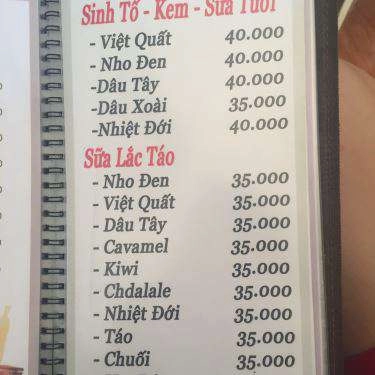 Sinh Tố - Kem - Sữa Tươi
- Việt Quất 40.000
- Nho Đen 40.000
-Dâu Tây 40.000
-Dâu Xoài 35.000
-Nhiệt Đới 40.000
Sữa Lắc Táo
- Nho Đen 35.000
- Việt Quất 35.000
- Dâu Tây 35.000
- Cavamel 35.000
- Kiwi 35.000
- Chdalale 35.000
- Nhiệt Đới 35.000
- Táo 35.000
- Chuối 35.000